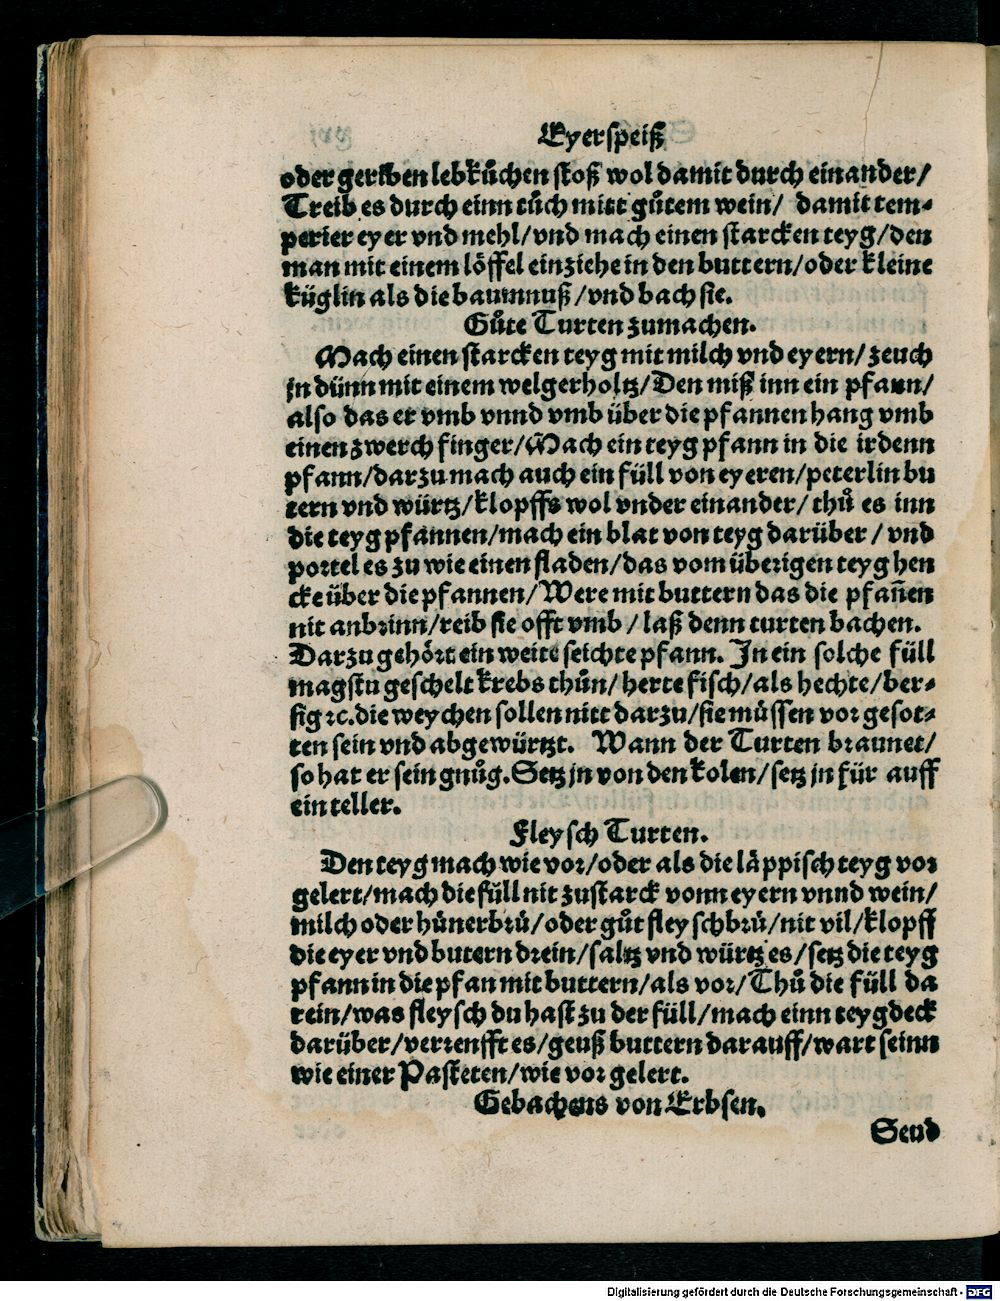 Eyerspeiß
oder geriben lebkůchen stoß wol damit durch einander/
Treib es durch einn tůch mitt gůtem wein/ damit tem-
perier eyer vnd mehl/vnd mach einen starcken teyg/den
man mit einem löffel einziehe in den buttern/oder kleine
küglin als die baumnuß/vnd bach sie.
Gůte Turten zumachen.
Mach einen starcken teyg mit milch vnd eyern/ zeuch
jn dünn mit einem welgerholtz/Den miß inn ein pfann/
also das er vmb vnnd vmb über die pfannen hang vmb
einen zwerch finger/Mach ein teyg pfann in die irdenn
pfann/darzu mach auch ein füll von eyeren/peterlin bu
tern vnd würtz/klopffs wol vnder einander/ thů es inn
die teyg pfannen/mach ein blat von teyg darüber/ vnd
portel es zu wie einen fladen/das vom überigen teyg hen
cke über die pfannen/Were mit buttern das die pfan̄en
nit anbrinn/reib sie offt vmb/ laß denn turten bachen.
Darzu gehört ein weite seichte pfann. In ein solche füll
magstu geschelt krebs thůn/ herte fisch/als hechte/ber-
sig ꝛc.die weychen sollen nitt darzu/sie müssen vor gesot-
ten sein vnd abgewürtzt. Wann der Turten braunet/
so hat er sein gnůg.Setz jn von den kolen/setz jn für auff
ein teller.
Fleysch Turten.
Den teyg mach wie vor/oder als die läppisch teyg vor
gelert/mach die füll nit zustarck vonn eyern vnnd wein/
milch oder hünerbrü/oder gůt fleyschbrü/nit vil/klopff
die eyer vnd butern drein/saltz vnd würtz es/setz die teyg
pfann in die pfan mit buttern/als vor/Thů die füll da
rein/was fleysch du hast zu der füll/mach einn teygdeck
darüber/verrenfft es/geuß buttern darauff/wart seinn
wie einer Pasteten/wie vor gelert.
Gebachens von Erbsen.
Seud
Digitalisierung gefördert durch die Deutsche Forschungsgemeinschaft - DFG